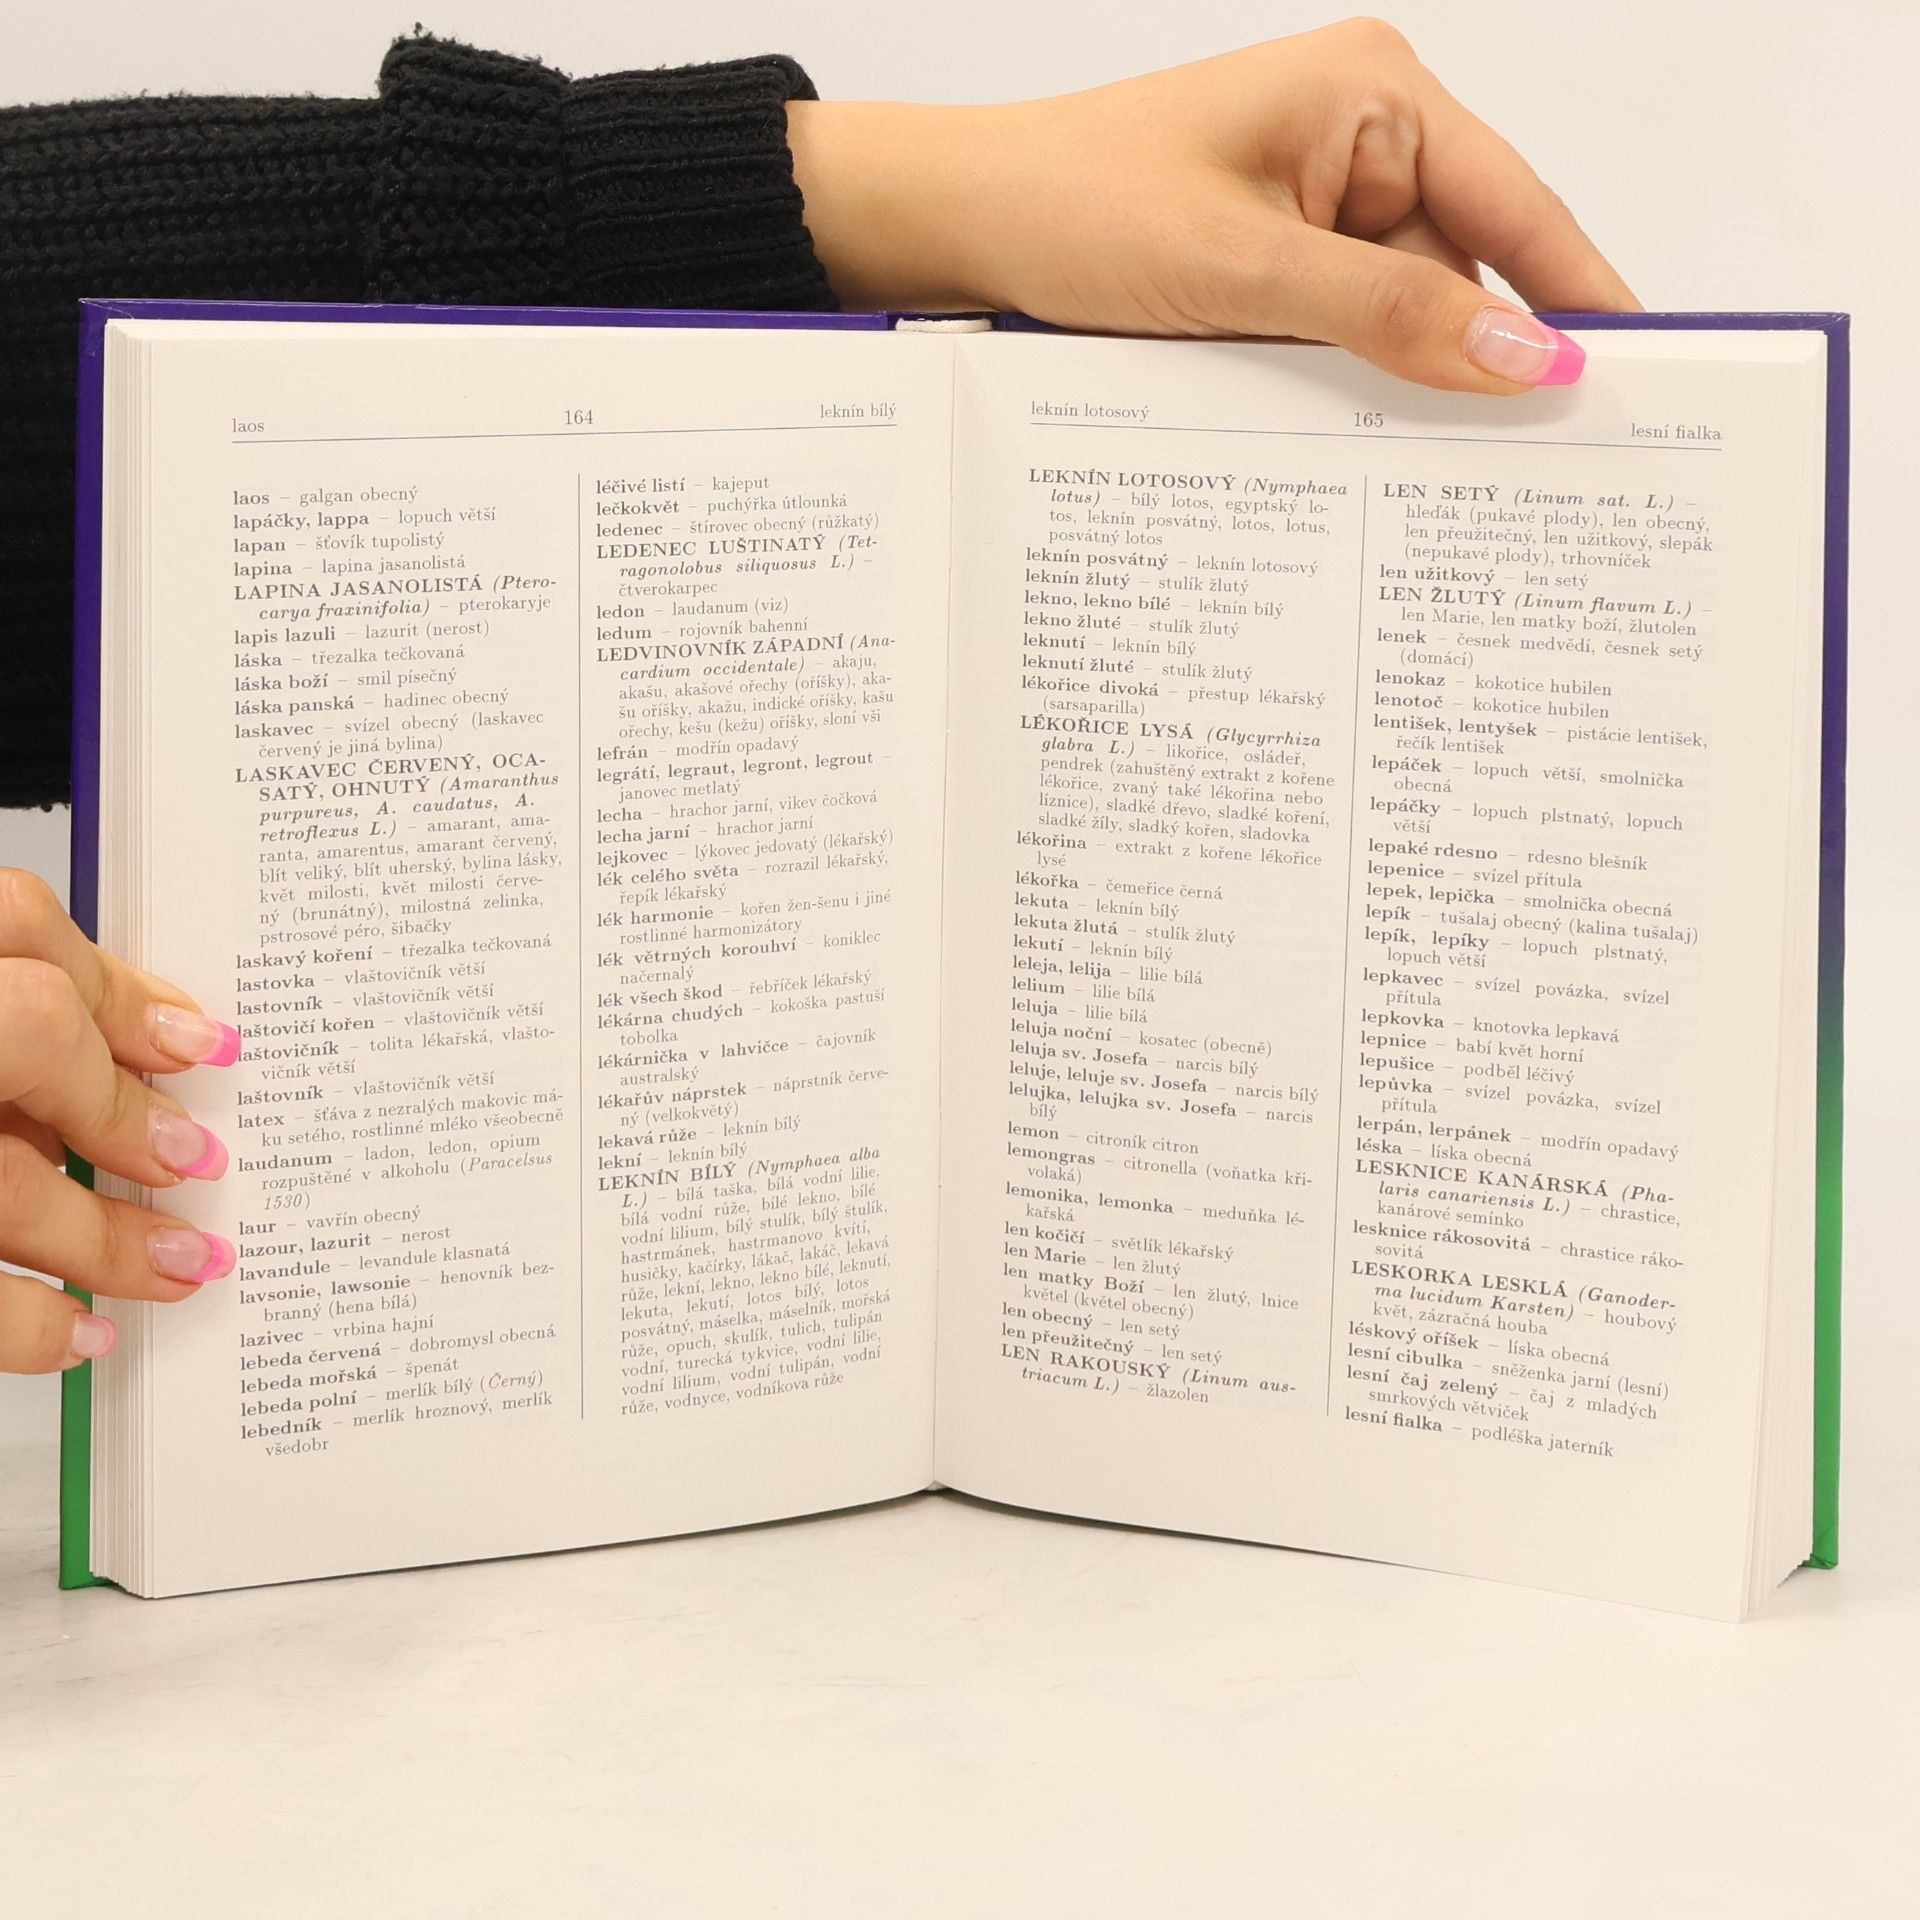 laos 164 leknín bílý
laos – galgan obecný
lapáčky, lappa – lopuch větší
lapan – šťovík tupolistý
lapina – lapina jasanolistá
LAPINA JASANOLISTÁ (Ptero-
carya fraxinifolia) – pterokaryje
lapis lazuli – lazurit (nerost)
láska – třezalka tečkovaná
láska boží – smil písečný
láska panská – hadinec obecný
laskavec – svízel obecný (laskavec
červený je jiná bylina)
LASKAVEC ČERVENÝ, OCA-
SATÝ, OHNUTÝ (Amaranthus
purpureus, A. caudatus, A.
retroflexus L.) – amarant, ama-
ranta, amarentus, amarant červený,
blít veliký, blít uherský, bylina lásky,
květ milosti, květ milosti červe-
ný (brunátný), milostná zelinka,
pstrosové péro, šibačky
laskavý koření – třezalka tečkovaná
lastovka – vlaštovičník větší
lastovník – vlaštovičník větší
laštovičí kořen – vlaštovičník větší
laštovičník – tolita lékařská, vlašto-
vičník větší
laštovník – vlaštovičník větší
latex – šťáva z nezralých makovic má-
ku setého, rostlinné mléko všeobecně
laudanum – ladon, ledon, opium
rozpuštěné v alkoholu (Paracelsus
1530)
laur – vavřín obecný
lazour, lazurit – nerost
lavandule – levandule klasnatá
lavsonie, lawsonie – henovník bez-
branný (hena bílá)
lazivec – vrbina hajní
lebeda červená – dobromysl obecná
lebeda mořská – špenát
lebeda polní – merlík bílý (Černý)
lebedník – merlík hroznový, merlík
všedobr
léčivé listí – kajeput
lečkokvět – puchýřka útlounká
ledenec – štírovec obecný (růžkatý)
LEDENEC LUŠTINATÝ (Tet-
ragonolobus siliquosus L.) –
čtverokarpec
ledon – laudanum (viz)
ledum – rojovník bahenní
LEDVINOVNÍK ZÁPADNÍ (Ana-
cardium occidentale) – akaju,
akašu, akašové ořechy (oříšky), aka-
šu oříšky, akažu, indické oříšky, kašu
ořechy, kešu (kežu) oříšky, sloní vši
lefrán – modřín opadavý
legrátí, legraut, legront, legrout –
janovec metlatý
lecha – hrachor jarní, vikev čočková
lecha jarní – hrachor jarní
lejkovec – lýkovec jedovatý (lékařský)
lék celého světa – rozrazil lékařský,
řepík lékařský
lék harmonie – kořen žen-šenu i jiné
rostlinné harmonizátory
lék větrných korouhví – koniklec
načernalý
lék všech škod – řebříček lékařský
lékárna chudých – kokoška pastuší
tobolka
lékárnička v lahvičce – čajovník
australský
lékařův náprstek – náprstník červe-
ný (velkokvětý)
lekavá růže – leknín bílý
lekní – leknín bílý
LEKNÍN BÍLÝ (Nymphaea alba
L.) – bílá taška, bílá vodní lilie,
bílá vodní růže, bílé lekno, bílé
vodní lilium, bílý stulík, bílý štulík,
hastrmánek, hastrmanovo kvítí,
husičky, kačírky, lákač, lakáč, lekavá
růže, lekní, lekno, lekno bílé, leknutí,
lekuta, lekutí, lotos bílý, lotos
posvátný, máselka, máselník, mořská
růže, opuch, skulík, tulich, tulipán
vodní, turecká tykvice, vodní lilie,
vodní lilium, vodní tulipán, vodní
růže, vodnyce, vodníkova růže
leknín lotosový 165 lesní fialka
LEKNÍN LOTOSOVÝ (Nymphaea
lotus) – bílý lotos, egyptský lo-
tos, leknín posvátný, lotos, lotus,
posvátný lotos
leknín posvátný – leknín lotosový
leknín žlutý – stulík žlutý
lekno, lekno bílé – leknín bílý
lekno žluté – stulík žlutý
leknutí – leknín bílý
leknutí žluté – stulík žlutý
lékořice divoká – přestup lékařský
(sarsaparilla)
LÉKOŘICE LYSÁ (Glycyrrhiza
glabra L.) – likořice, osládeř,
pendrek (zahuštěný extrakt z kořene
lékořice, zvaný také lékořina nebo
líznice), sladké dřevo, sladké koření,
sladké žíly, sladký kořen, sladovka
lékořina – extrakt z kořene lékořice
lysé
lékořka – čemeřice černá
lekuta – leknín bílý
lekuta žlutá – stulík žlutý
lekutí – leknín bílý
leleja, lelija – lilie bílá
lelium – lilie bílá
leluja – lilie bílá
leluja noční – kosatec (obecně)
leluja sv. Josefa – narcis bílý
leluje, leluje sv. Josefa – narcis bílý
lelujka, lelujka sv. Josefa – narcis
bílý
lemon – citroník citron
lemongras – citronella (voňatka kři-
volaká)
lemonika, lemonka – meduňka lé-
kařská
len kočičí – světlík lékařský
len Marie – len žlutý
len matky Boží – len žlutý, lnice
květel (květel obecný)
len obecný – len setý
len přeužitečný – len setý
LEN RAKOUSKÝ (Linum aus-
triacum L.) – žlazolen
LEN SETÝ (Linum sat. L.) –
hleďák (pukavé plody), len obecný,
len přeužitečný, len užitkový, slepák
(nepukavé plody), trhovníček
len užitkový – len setý
LEN ŽLUTÝ (Linum flavum L.) –
len Marie, len matky boží, žlutolen
lenek – česnek medvědí, česnek setý
(domácí)
lenokaz – kokotice hubilen
lenotoč – kokotice hubilen
lentišek, lentyšek – pistácie lentišek,
řečík lentišek
lepáček – lopuch větší, smolnička
obecná
lepáčky – lopuch plstnatý, lopuch
větší
lepaké rdesno – rdesno blešník
lepenice – svízel přítula
lepek, lepička – smolnička obecná
lepík – tušalaj obecný (kalina tušalaj)
lepík, lepíky – lopuch plstnatý,
lopuch větší
lepkavec – svízel povázka, svízel
přítula
lepkovka – knotovka lepkavá
lepnice – babí květ horní
lepušice – podběl léčivý
lepůvka – svízel povázka, svízel
přítula
lerpán, lerpánek – modřín opadavý
léska – líska obecná
LESKNICE KANÁRSKÁ (Pha-
laris canariensis L.) – chrastice,
kanárové semínko
lesknice rákosovitá – chrastice ráko-
sovitá
LESKORKA LESKLÁ (Ganoder-
ma lucidum Karsten) – houbový
květ, zázračná houba
léskový oříšek – líska obecná
lesní cibulka – sněženka jarní (lesní)
lesní čaj zelený – čaj z mladých
smrkových větviček
lesní fialka – podléška jaterník